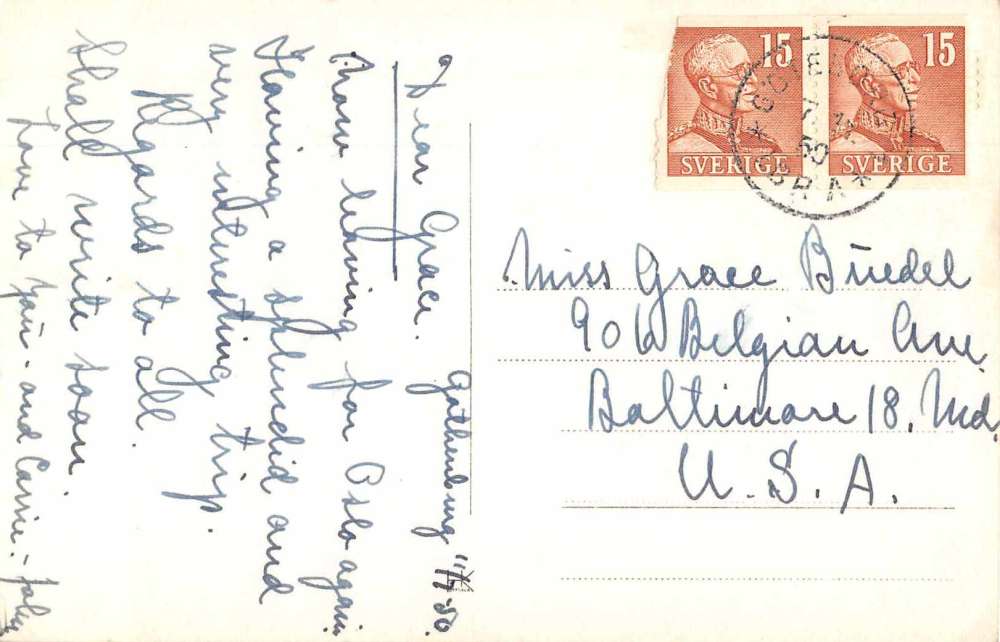 Gothenburg
Dear Grace.
Now leaving for Oslo again.
Having a splendid and
very interesting trip.
Regards to all.
Shall write soon.
Love to you - and Carrie. - John
15
15
SVERIGE
SVERIGE
Miss Grace Büedel
906 Belgian Ave,
Baltimore 18, Md,
U. S. A.